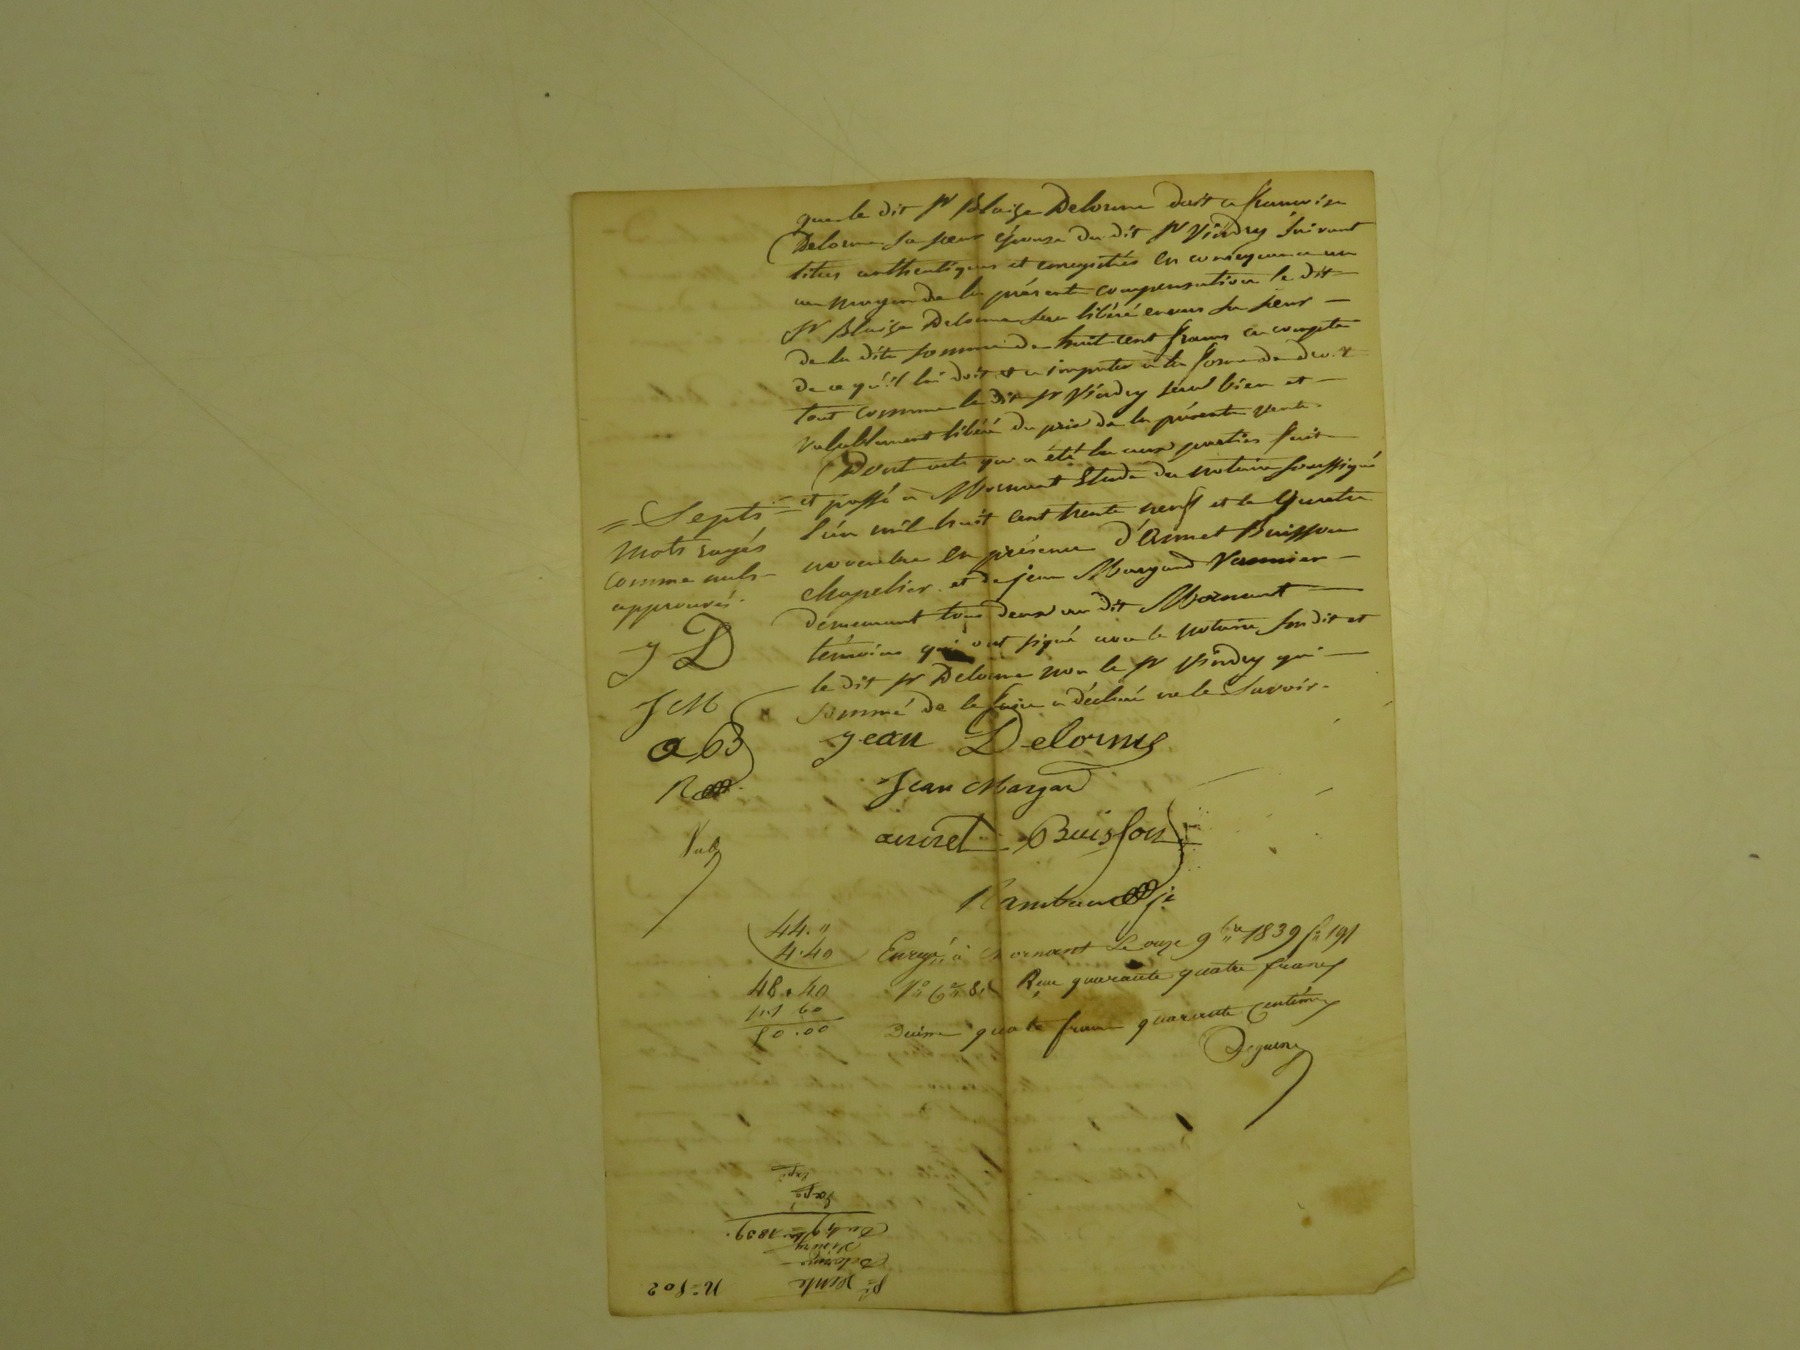 que le dit Sr Blaize Delorme doit a francoise
Delorme sa soeur épouse du dit Sr Vindry Suivant
titres authentiques et enregistrés en consequence
au moyen de la présente compensation le dit
Sr Blaize Delorme sera libéré envers sa soeur
de la dite somme de huit cent francs en compte
de ce qu'il lui doit et a imputer a la forme de
tout comme le dit Sr Vindry sera bien et
valablement libéré du prix de la présente vente
Dont acte qui a été lu aux parties fait
et passé a Mornant Etude du notaire soussigné
l'an mil huit cent trente neuf et le Quatre
novembre en présence d'Annet Buisson
chapelier et de jean Margand
demeurant tous deux au dit Mornant
témoins qui ont signé avec le notaire susdit et
le dit Sr Delorme non le Sr Vindry qui
sommé de le faire a déclaré ne le Savoir.
= Septs =
mots rayés
comme nuls
approuvés.
J D
J M
a B
R
jean Delorme
Jean Margan
annet Buisson
44. "
4.40
48.40
1.60
50.00
Enregé. à Mornant Le onze 9bre 1839 fo 191
Vo Reçu quarante quatre francs
Décime quatre francs quarante Centimes
No 502
Vente
Delorme
Vindry
Du 4 9bre 1839.
Expé